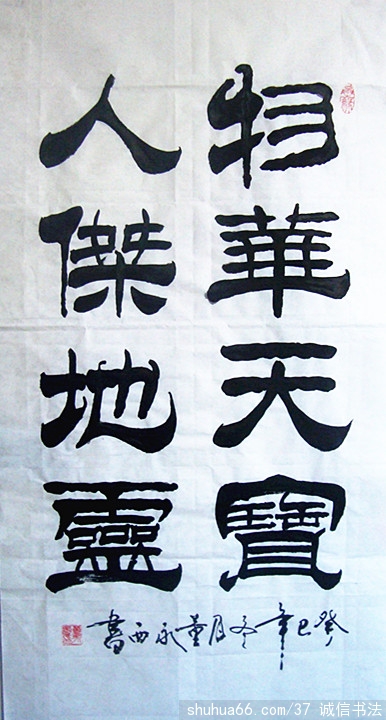 物華天寶
人傑地靈
癸巳年冬月董永西書
shuhua66.com/37 诚信书法